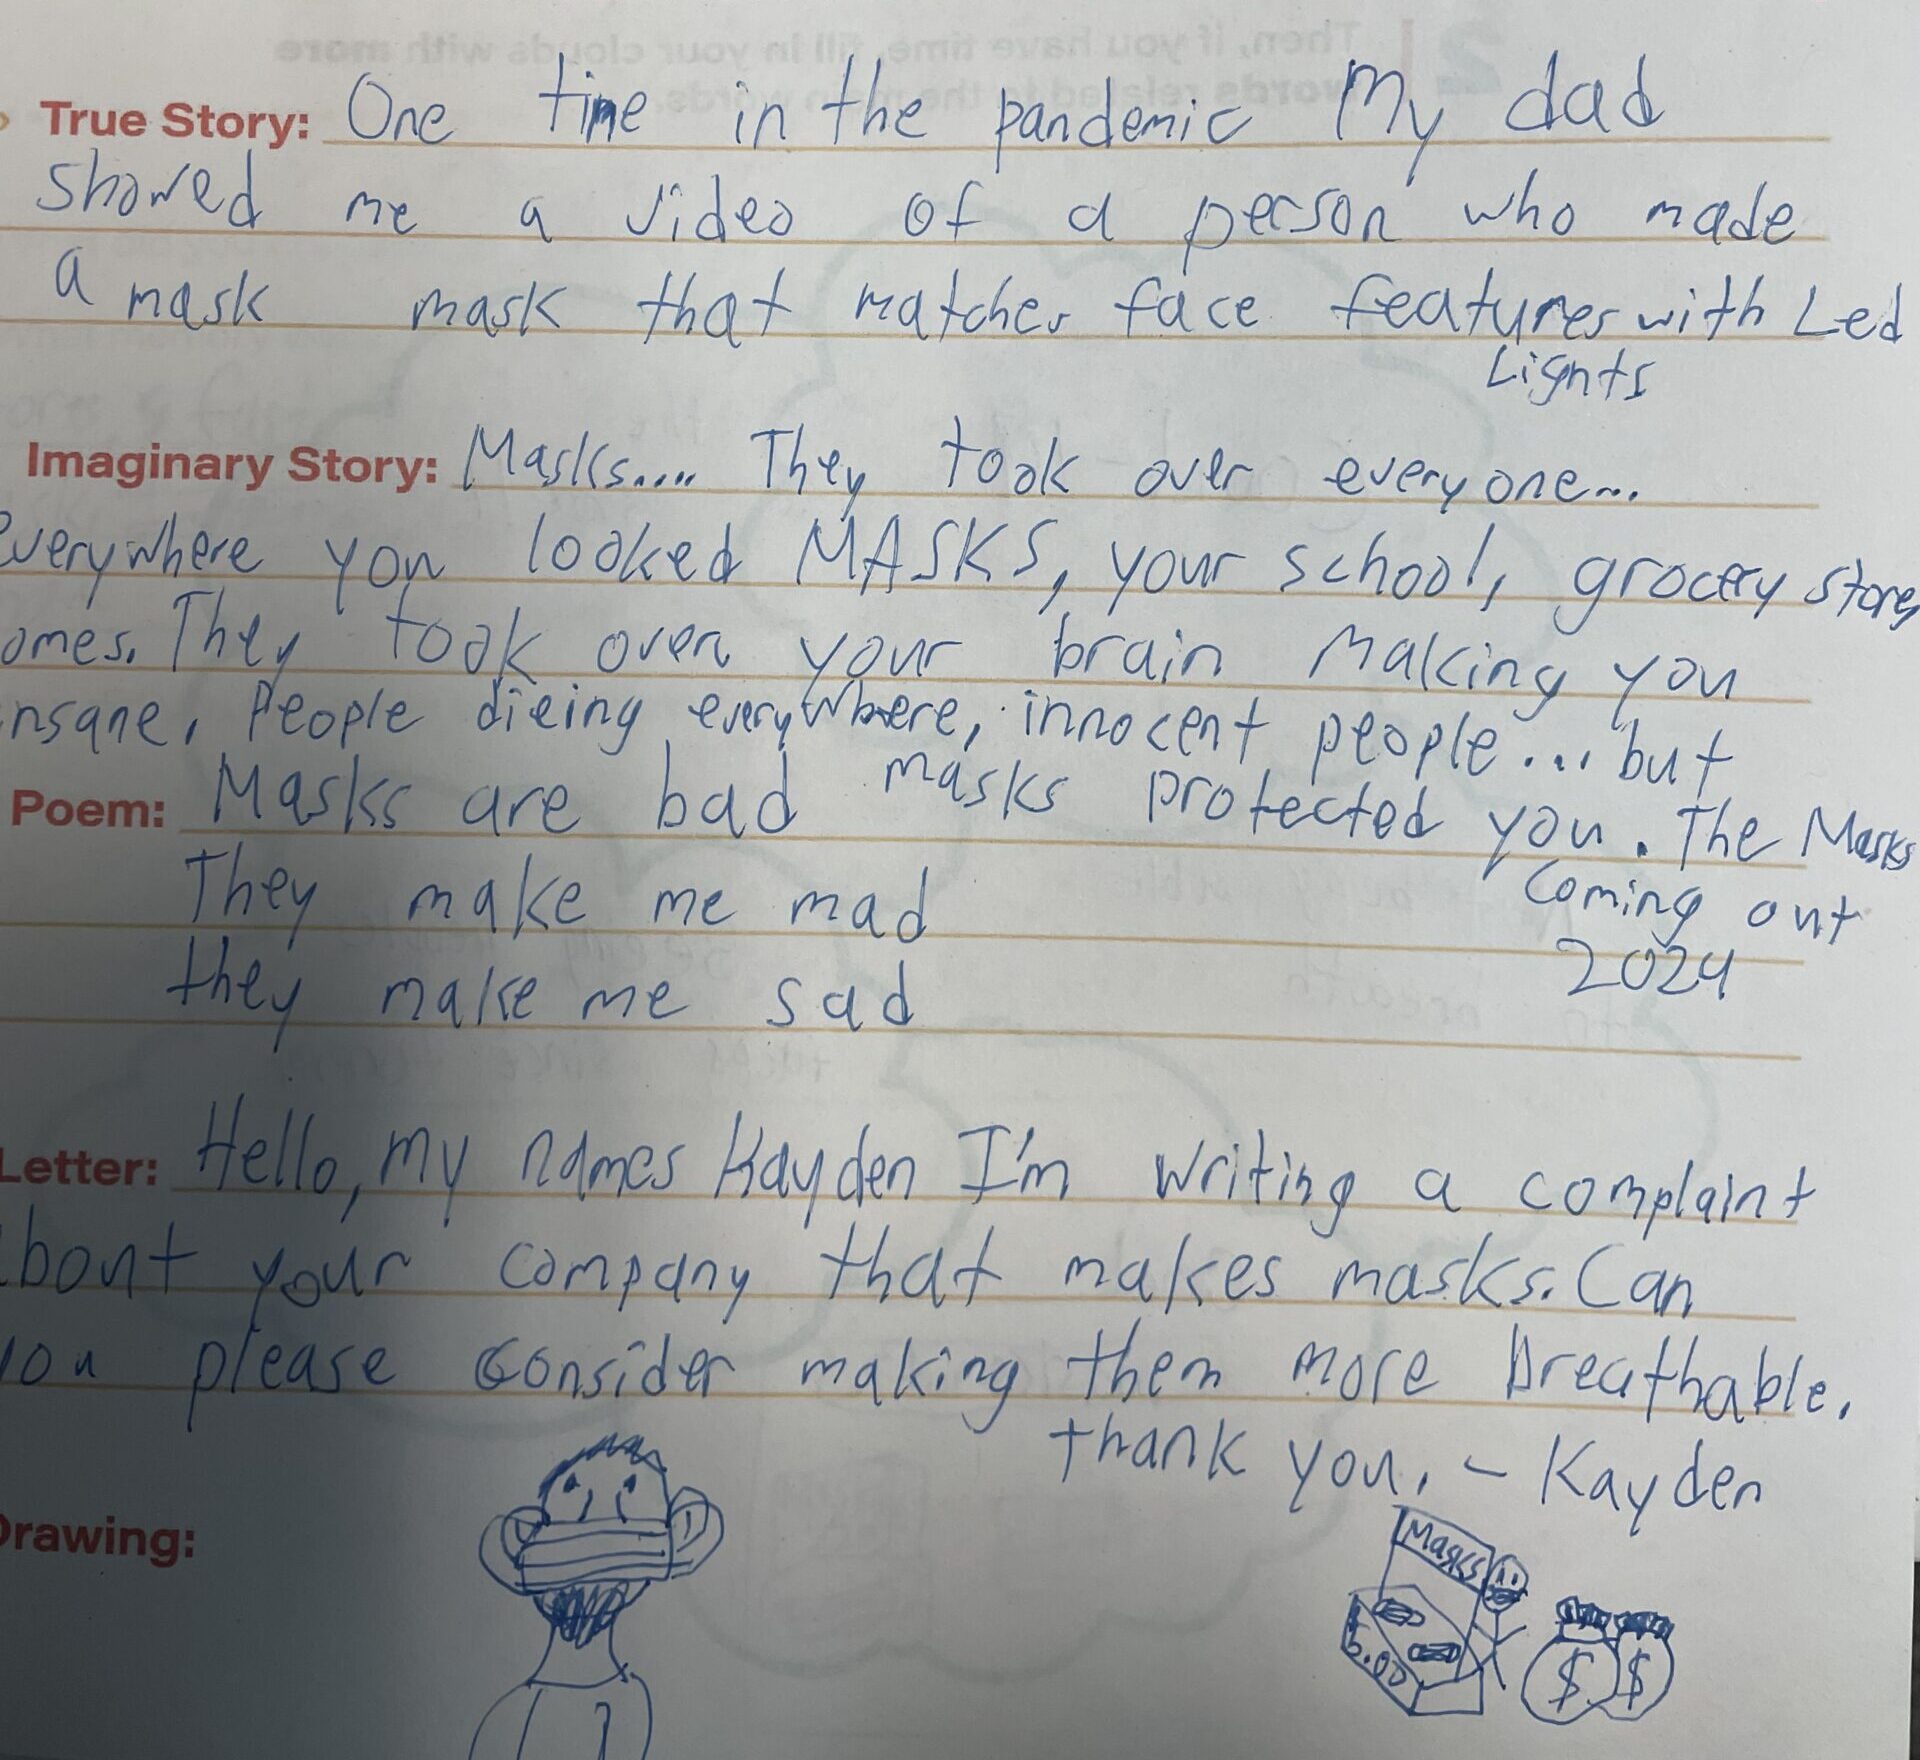 True Story: One time in the pandemic My dad
showed me a video of a person who made
a mask mask that matches face features with Led
Lights
Imaginary Story: Masks.... They took over everyone...
everywhere you looked MASKS, your school, grocery stores,
omes. They took over your brain Making you
insane, People dieing everywhere, innocent people... but
masks protected you. The Masks
Coming out
2024
Poem: Masks are bad
They make me mad
they make me sad
Letter: Hello, my names Kayden I'm writing a complaint
about your company that makes masks. Can
you please consider making them more breathable.
thank you. - Kayden
Drawing:
Masks
$5.00
$ $